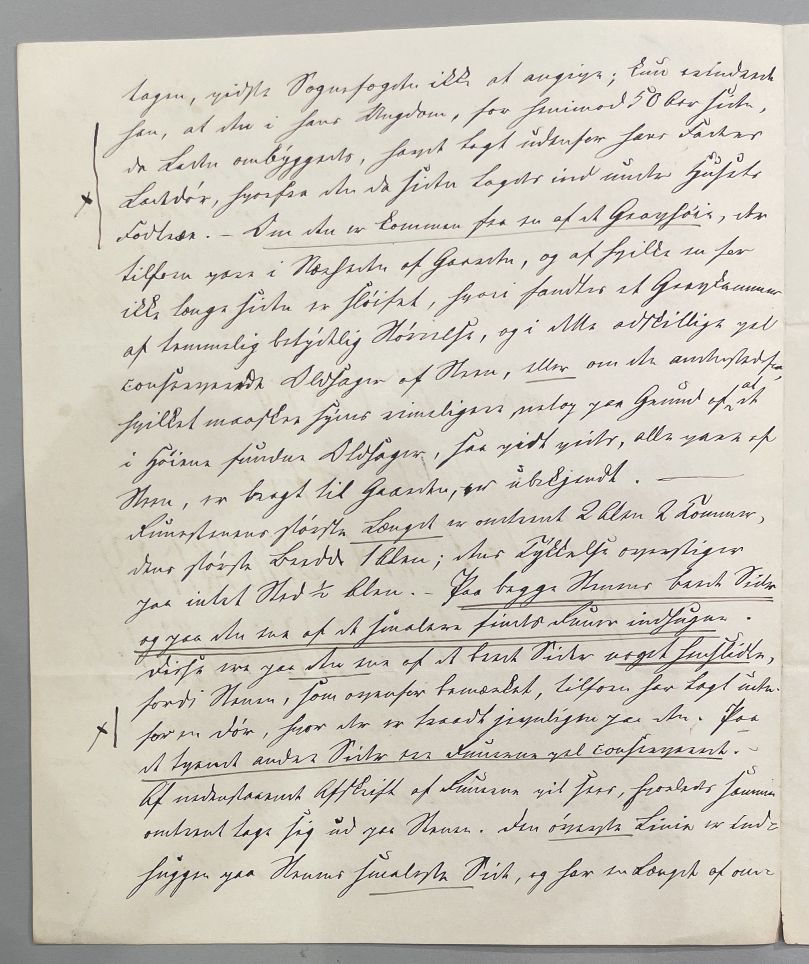 tagen, vidste Sognefogden ikke at angive; kun erindrede
han, at den i hans Ungdom, for henimod 50 Aar siden,
da Laden ombyggedes, havde lagt udenfor hans Faders
Ladedør, hvorfra den da siden lagdes ind under Husets
Fodtræe. – Om den er kommen fra en af de Gravhøie, der
tilforn vare i Nærheden af Gaarden, og af hvilke en for
ikke længe siden er sløifet, hvori fandtes et Gravkammer
af temmelig betydelig Størrelse, og i dette adskillige vel
conserverede Oldsager af Steen, eller om den andenstedsfra,
hvilket maaskee synes rimeligere netop paa Grund af at de
i Høiene fundne Oldsager, saa vidt vides, alle vare af
Steen, er bragt til Gaarden, er ubekjendt. —
Runestenens største Længde er omtrent 2 Alen 2 Tommer,
dens største Bredde 1 Alen; dens Tykkelse overstiger
paa intet Sted ½ Alen. – Paa begge Stenens brede Sider
og paa den ene af de smalere findes Runer indhugne.
Disse ere paa den ene af de brede Sider noget henslidte,
fordi Stenen, som ovenfor bemærket, tilforn har lagt uden-
for en Dør, hvor der er traadt jevnligen paa den. Paa
de tvende andre Sider ere Runerne vel conserverede. –
Af nedenstaaende Afskrift af Runerne vil sees, hvorledes samme
omtrent tage sig ud paa Stenen. Den øverste Linie er ind=
huggen paa Stenens smaleste Side, og har en Længde af om=